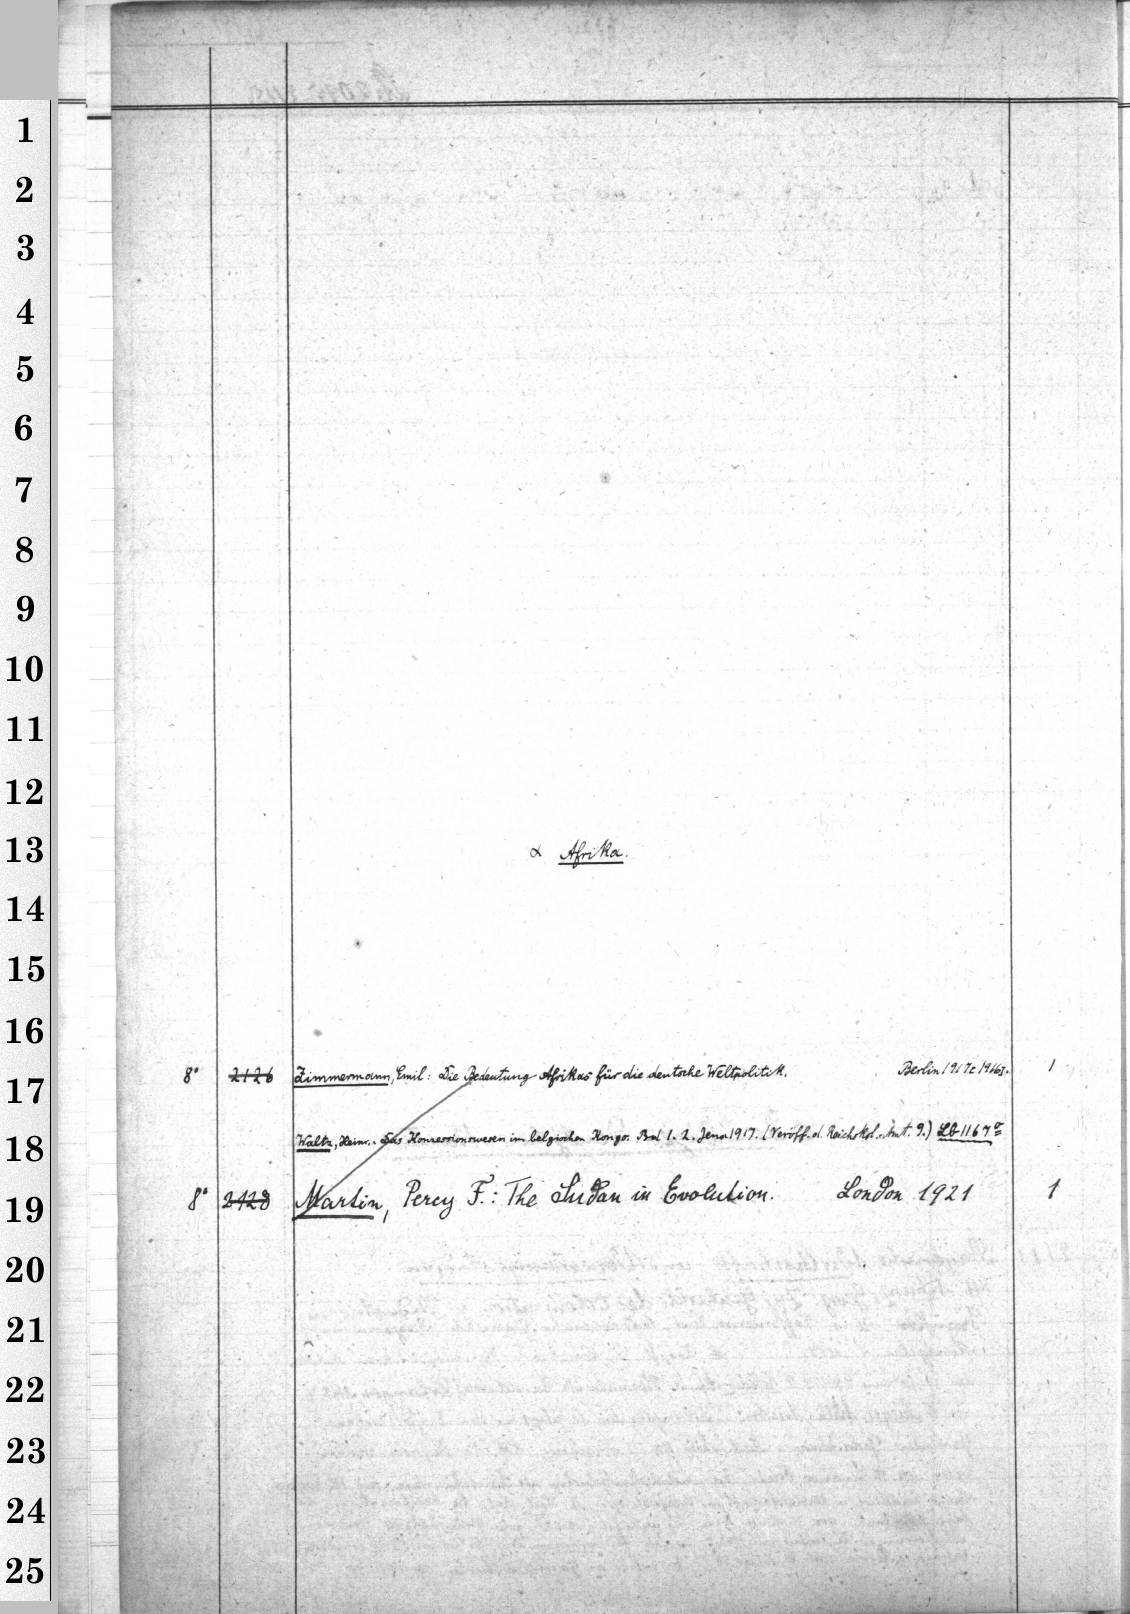 1
2
3
4
5
6
7
8
9
10
11
12
13
α Afrika.
14
15
16
17
8° 2126 Zimmermann, Emil: Die Bedeutung Afrikas für die deutsche Weltpolitik. Berlin 1917 1
18
Waltz, Heinr.: Das Konzessionswesen im belgischen Kongo. Bd 1. 2. Jena 1917. (Veröff. d. Reichskol.-Amt. 9.) LB 1167
19
8° 2128 Martin, Percy F.: The Sudan in Evolution. London 1921 1
20
21
22
23
24
25